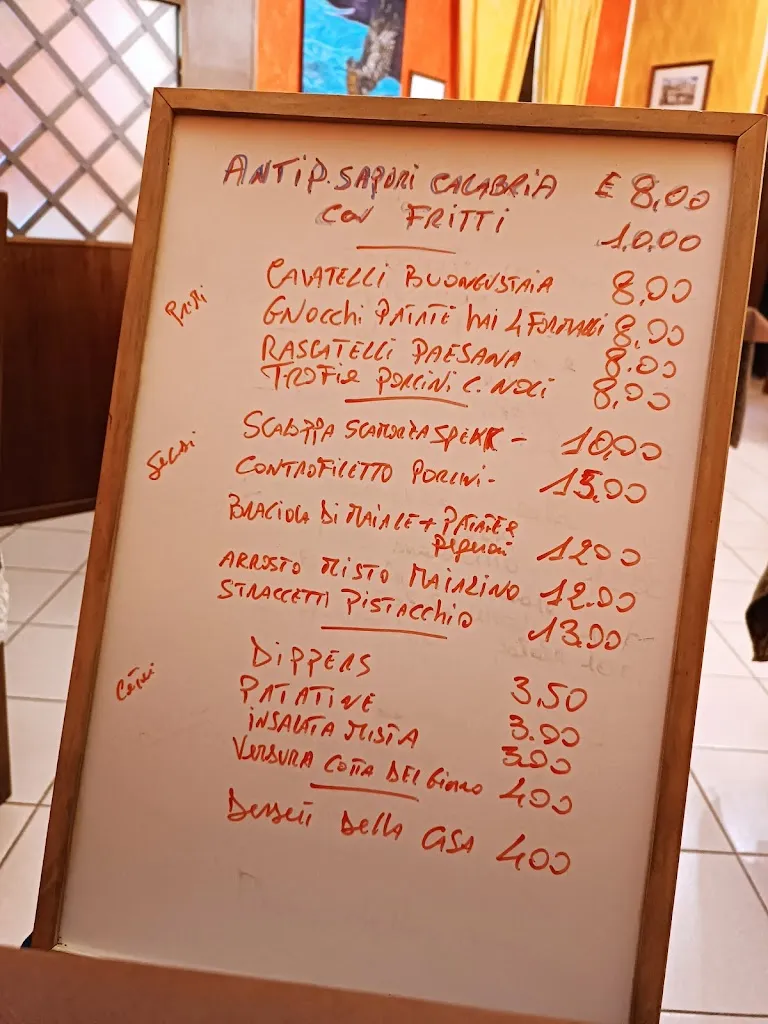 ANTIP. SAPORI CALABRIA € 8,00
CON FRITTI 10.00
CAVATELLI BUONGUSTAIA 8,00
Primi
GNOCCHI PATATE 4 FORMAGGI 8,00
RASCATELLI PAESANA 8.00
TROFIE PORCINI E NOCI 8,00
SCALOPPA SCAMORZA SPEKK - 10,00
Secondi
CONTROFILETTO PORCINI - 15,00
BRACIOLA DI MAIALE + PATATE E
Peperoni 1200
ARROSTO MISTO MAIALINO 12.00
STRACCETTI PISTACCHIO 13.00
DIPPERS 3,50
Contorni
PATATINE 3.00
INSALATA MISTA 3.00
VERDURA COTTA DEL Giorno 400
Dessert Della CASA 400